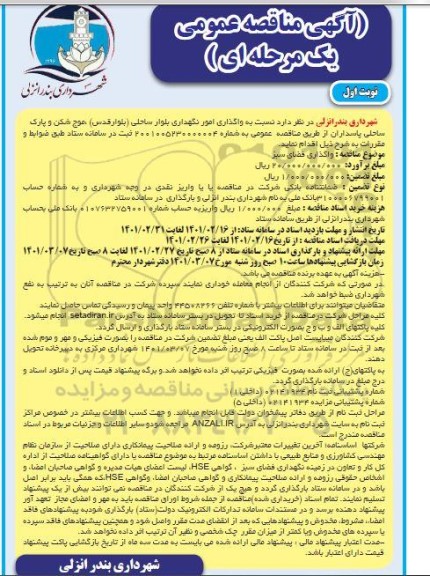 (آگهی مناقصه عمومی
یک مرحله ای)
شهرداری بندرانزلی
نوبت اول
شهرداری بندرانزلی در نظر دارد نسبت به واگذاری امور نگهداری بلوار ساحلی (بلوارقدس) موج شکن و پارک
ساحلی پاسداران از طریق مناقصه عمومی به شماره ۲۰۰۱۰۰۵۲۳۰۰۰۰۰۰۴ ثبت در سامانه ستاد طبق ضوابط و
مقررات به شرح ذیل اقدام نماید.
موضوع مناقصه : واگذاری فضای سبز
مبلغ برآورد: ۲۰/۰۰۰/۰۰۰/۰۰۰ ریال
مبلغ تضمین: ۱/۰۰۰/۰۰۰/۰۰۰ ریال
نوع تضمین : ضمانتنامه بانکی شرکت در مناقصه یا واریز نقدی در وجه شهرداری و به شماره حساب
بانک ملی به نام شهرداری بندر انزلی و بارگذاری در سامانه ستاد
هزینه خرید اسناد مناقصه : مبلغ ۱/۰۰۰/۰۰۰ ریال واریز به حساب شماره ۰۱۰۷۶۳۲۷۵۹۰۰۱ بانک ملی بحساب
شهرداری بندرانزلی از طریق سامانه ستاد
تاریخ انتشار و مهلت بازدید اسناد در سامانه ستاد: از ۱۴۰۱/۰۲/۱۶ لغایت ۱۴۰۱/۰۲/۲۱
مهلت دریافت اسناد مناقصه : از تاریخ ۱۴۰۱/۰۲/۱۶ لغایت ۱۴۰۱/۰۲/۲۶
مهلت ارائه پیشنهاد و بارگذاری اسناد در سامانه ستاد از ۸ صبح تاریخ ۱۴۰۱/۰۲/۲۷ لغایت ۸ صبح تاریخ ۱۴۰۱/۰۳/۰۷
زمان بازگشایی پیشنهادها ساعت ۱۰ صبح روز شنبه مورخ ۱۴۰۱/۰۳/۰۷ دفتر شهردار محترم
-هزینه آگهی به عهده برنده مناقصه می باشد.
-در صورتی که شرکت کنندگان از انجام معامله خودداری نمایند سپرده شرکت در مناقصه آنان به ترتیب به نفع
شهرداری ضبط خواهد شد.
متقاضیان میتوانند برای اطلاعات بیشتر با شماره تلفن ۴۴۵۰۸۲۶۶ واحد پیمان و رسیدگی تماس حاصل نمایند.
کلیه مراحل شرکت در مناقصه از خرید اسناد تا تحویل در بستر سامانه ستاد به آدرس setadiran.ir انجام میشود.
کلیه پاکتهای الف و ب و ج بصورت الکترونیکی در بستر سامانه ستاد بارگذاری و ارسال گردد.
شرکت کنندگان میبایست اصل پاکت الف یعنی مبلغ تضمین شرکت در مناقصه را بصورت فیزیکی و مهر و موم شده
بعد از ثبت در سامانه ستاد تا ساعت ۸ صبح روز شنبه مورخ ۱۴۰۱/۰۳/۰۷ شهرداری مرکزی به دبیرخانه تحویل
دهند.
به پاکتهای(ج) ارائه شده بصورت فیزیکی ترتیب اثر داده نخواهد شد.و برگه پیشنهاد قیمت پس از دانلود اسناد و
درج مبلغ در سامانه بارگذاری گردد.
شماره پشتیبانی ثبت نام ۰۲۱۴۱۹۳۴ (داخلی ۱)
شماره پشتیبانی مزایده ۰۲۱۴۱۹۳۴ (داخلی ۵)
مراحل ثبت نام از طریق دفاتر پیشخوان دولت قابل انجام میباشد. و جهت کسب اطلاعات بیشتر در خصوص مراکز
ثبت نام به سایت شهرداری بندرانزلی به آدرس ANZALI.IR مراجعه و سایر اطلاعات و جزئیات مربوط در اسناد
مناقصه مندرج است.
شرکتها اساسنامه؛ آخرین تغییرات معتبر شرکت، رزومه و ارائه صلاحیت پیمانکاری دارای صلاحیت از سازمان نظام
مهندسی کشاورزی و منابع طبیعی یا داشتن اساسنامه مرتبط به موضوع مناقصه یا دارای گواهینامه صلاحیت از اداره
کل کار و تعاون در زمینه نگهداری فضای سبز ، گواهی HSE، لیست اعضای هیات مدیره و گواهی صاحبان امضا، و
اشخاص حقوقی رزومه و ارائه صلاحیت پیمانکاری و گواهی صاحبان امضا، وگواهی HSE،که همگی باید برابر اصل
باشد و در سامانه ستاد بارگذاری گردد و هیچ یک از شرکت کنندگان در مناقصه نمی توانند بیش از یک پیشنهاد
تسلیم نمایند. تمام اسناد (خریداری شده)مناقصه از جمله شروط اوراق مناقصه باید به مهر و امضای مجاز تعهد آور
پیشنهاد دهنده برسد و در مستندات سامانه تدارکات الکترونیک دولت(ستاد) بارگذاری شود،به پیشنهادهای فاقد
امضاء، مشروط، مخدوش و پیشنهادهایی که بعد از انقضای مدت مقرر واصل شود و همچنین پیشنهادهای فاقد سپرده
یا سپرده های مخدوش ویا کمتر از میزان مقرر، چک شخصی و نظیر آن ترتیب اثر داده نخواهد شد.
-مدت اعتبار پیشنهاد مالی : پیشنهاد مالی ارائه شده می بایست به مدت سه ماه از تاریخ بازگشایی پاکت پیشنهاد
قیمت دارای اعتبار باشد.
شهرداری بندر انزلی